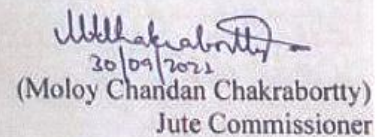 30/09/2021
(Moloy Chandan Chakrabortty)
Jute Commissioner